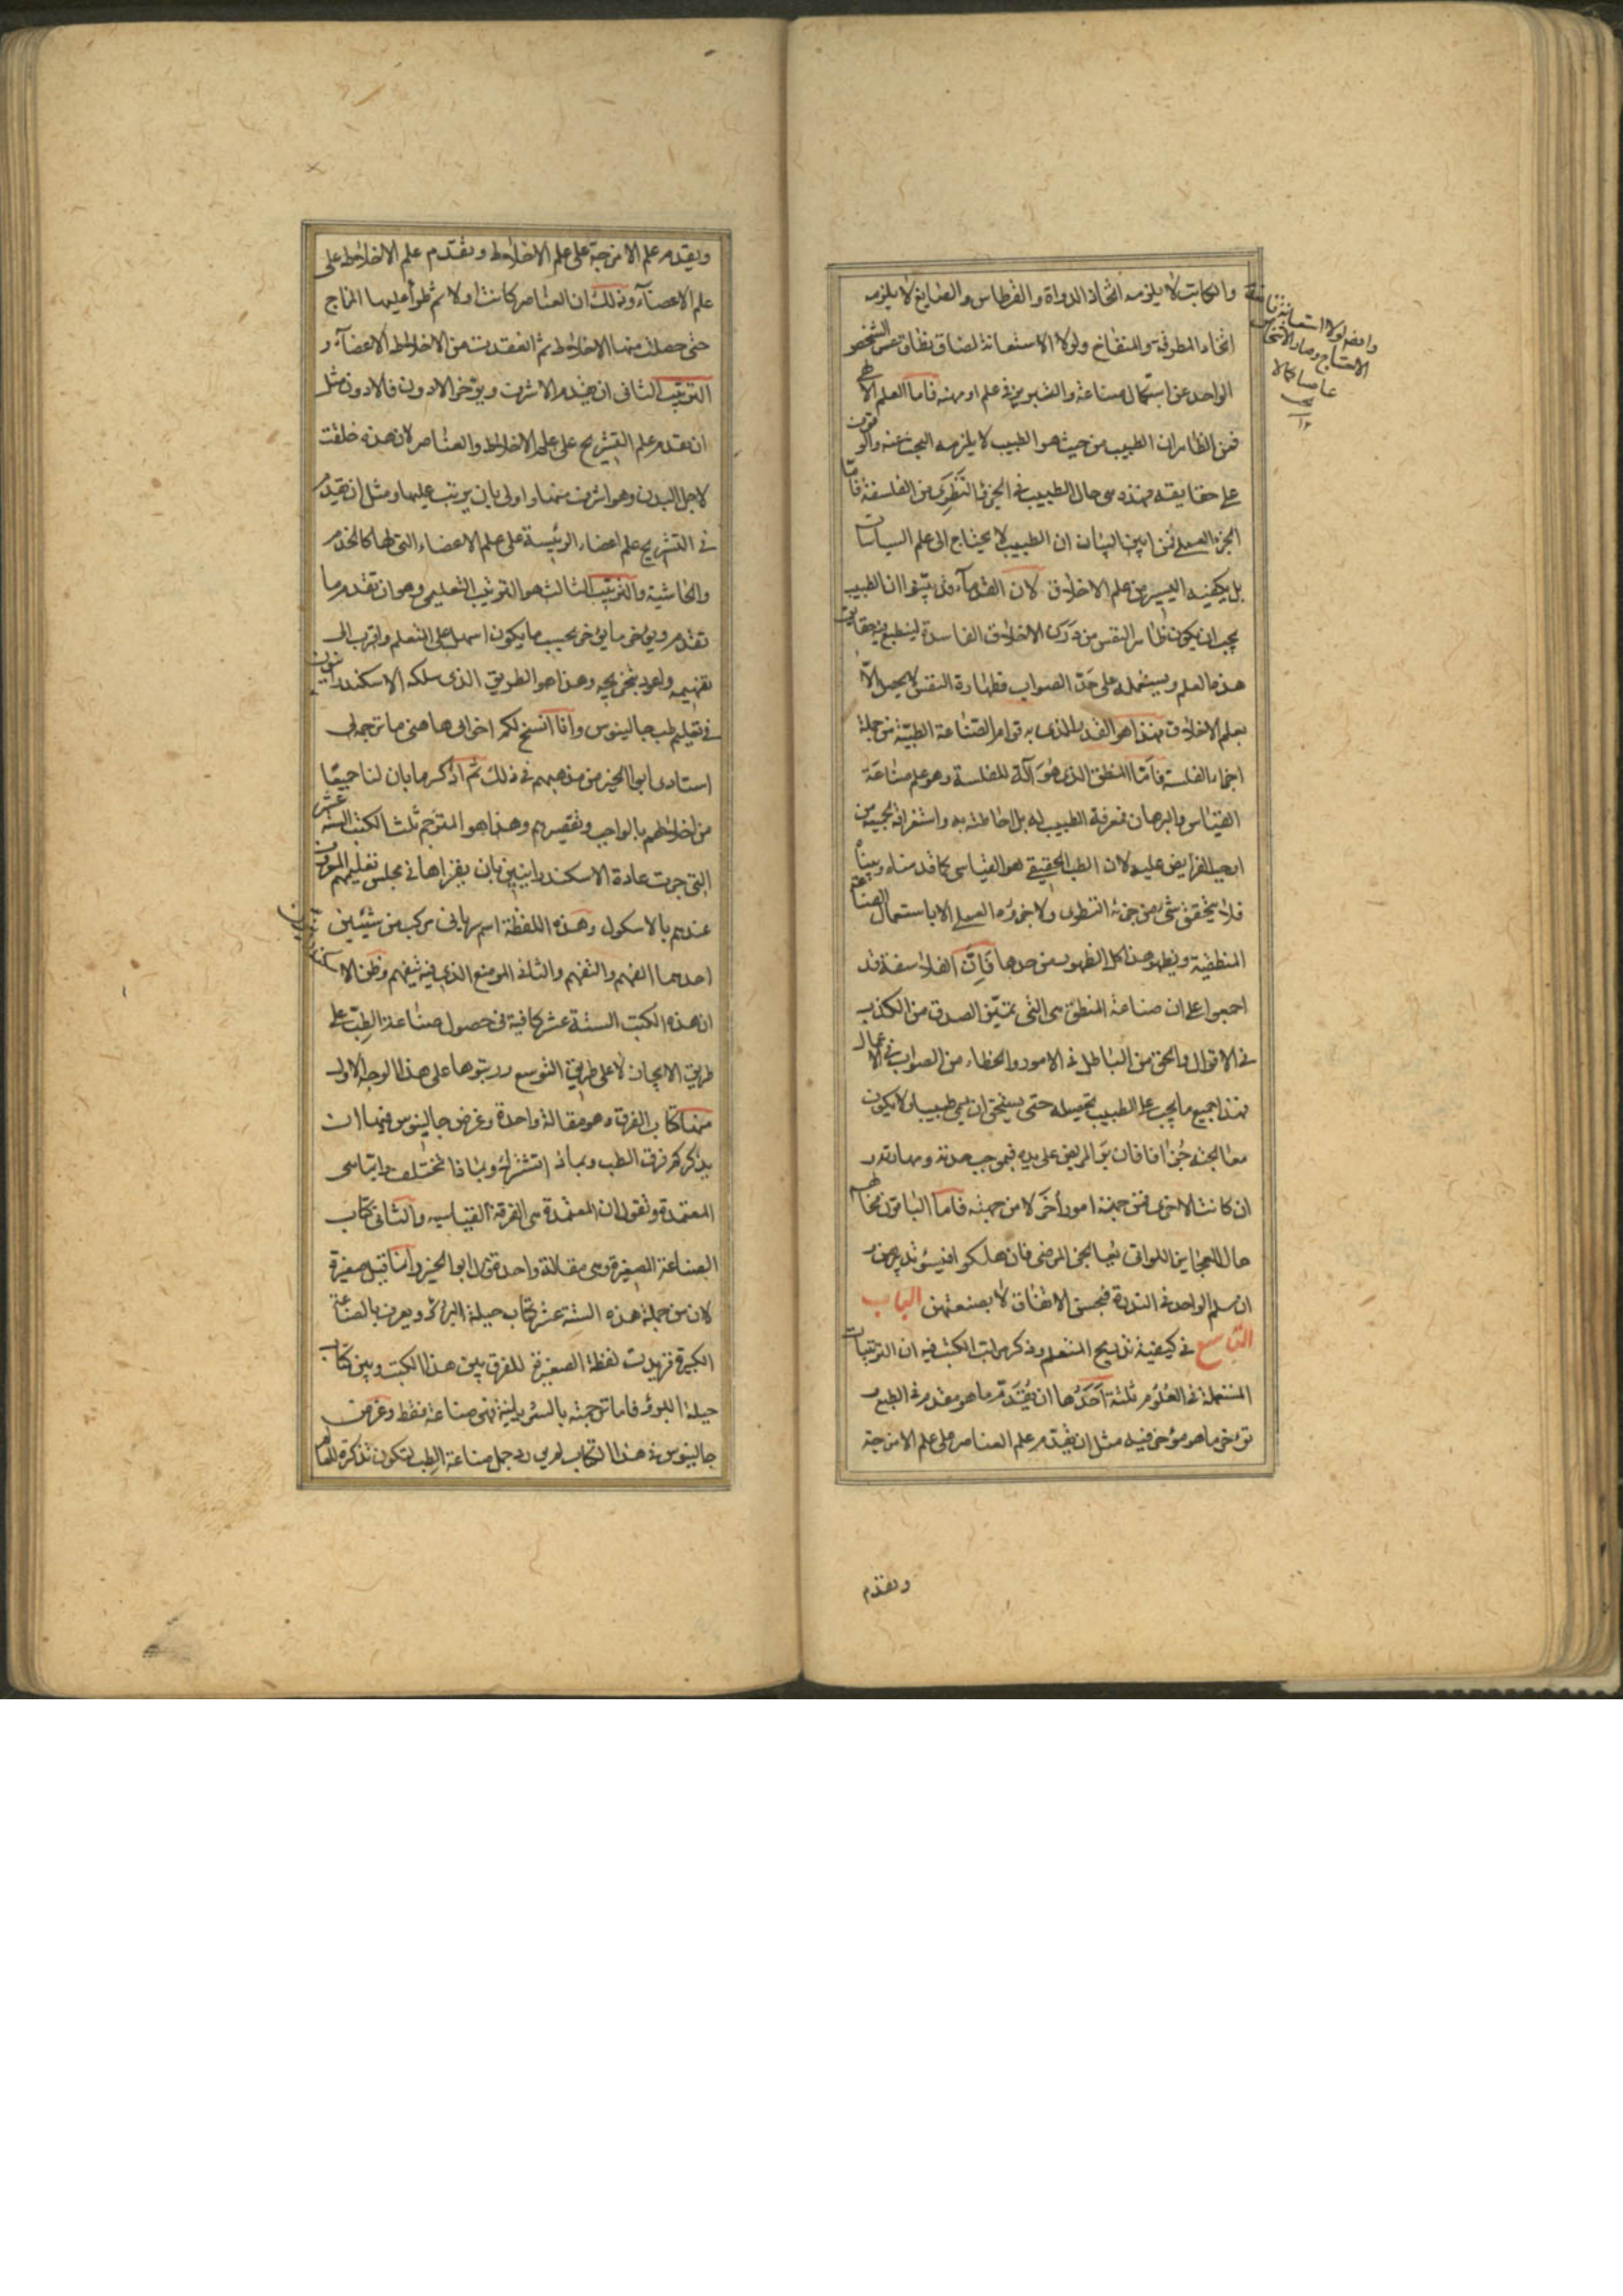 والكاتب لا يلزمه اتخاذ الدواة والقرطاس والصايغ لا يلزمه
اتخاذ المطرقة والمنفاخ ولولا الاستعانة لضاق نطاق عمر الشخص
الواحد عن استكمال صناعة والتبريز في علم او مهنه فاما العلم الالهي
فمن الظاهر ان الطبيب من حيث هو الطبيب لا يلزمه البحث عنه والوقوف
على حقايقه فهذه هى حال الطبيب فى الجزء النظرى من الفلسفة فاما
الجزء العملى فمن ابين البيان ان الطبيب لا يحتاج الى علم السياسات
بل يكفيه اليسير من علم الاخلاق لان القدماء قد بينوا ان الطبيب
يجب ان يكون طاهر النفس من درن الاخلاق الفاسدة لينطبع فيه حقايق
هذه العلم ويستعمله على حد الصواب فطهارة النفس لا يحصل الا
بعلم الاخلاق فهذا هو القدر الذى به قوام الصناعة الطبية من جملة
اجزاء الفلسفة فاما المنطق الذى هو آلة للفلسفة وهو علم صناعة
القياس والبرهان فمعرفة الطبيب له بل احاطته به واستغراقه لجميعه من
اوجب الفرايض عليه لان الطب الحقيقى هو القياسى كما قدمناه وبيناه
فلا يتحقق شئ من جزئه النظرى ولا جزؤه العملى الا باستعمال الصناعة
المنطقية ويظهر هذا كل الظهور من حدها فان الفلاسفة قد
اجمعوا على ان صناعة المنطق هى التى تميز الصدق من الكذب
فى الاقوال والحق من الباطل فى الامور والخطاء من الصواب فى الاعمال
فهذا جميع ما يجب على الطبيب تحصيله حتى يستحق ان يسمى طبيبا ولا يكون
معالجته جزافا فان برء المريض على يديه فبموجب حذقه ومهارته و
ان كانت الاخرى فمن جهة امور أخر لا من جهته فاما الباقون فحالهم
حال العجايز اللواتى يعالجن المرضى فان هلكوا فبسوء تدبيرهن و
ان سلم الواحد فى الندرة فبحسن الاتفاق لا بصنعتهن الباب
التاسع فى كيفية تدريج المتعلم وذكر مراتب الكتب فيه ان الترتيبات
المستعملة فى العلوم ثلثة أحدها ان يقدم ما هو مقدم فى الطبع و
يؤخر ما هو مؤخر فيه مثل ان يقدم علم العناصر على علم الامزجة
وتقدم
ويقدم علم الامزجة على علم الاخلاط وتقدم علم الاخلاط على
علم الاعضاء وذلك ان العناصر كانت اولا ثم طرأ عليها المزاج
حتى حصلت منها الاخلاط ثم انعقدت من الاخلاط الاعضآء و
الترتيب الثانى ان يقدم الاشرف ويؤخر الادون فالادون مثل
ان يقدم علم التشريح على علم الاخلاط والعناصر لان هذه خلقت
لاجل البدن وهو اشرف منها واولى بان يرتب عليها ومثل ان يقدم
فى التشريح علم اعضاء الرئيسة على علم الاعضاء التى لها كالخدم
والحاشية والترتيب الثالث هو الترتيب التعليمى وهو ان تقدم ما
تقدم ويؤخر ما يؤخر بحسب ما يكون اسهل على التعلم واقرب الى
تفهيمه واعود بتخريجه وهذا هو الطريق الذى سلكه الاسكندرانيون
فى تعليم طب جالينوس وأنا انسخ لكم اخوانى هاهنى ما ترجم لى
استادى ابوالخير من مذهبهم فى ذلك ثم اذكر ما بان لنا جميعا
من اخلاطهم بالواجب وتقصيرهم وهذا هو المترجم ثلث الكتب الستة عشر
التى جرت عادة الاسكندرانيين بان يقراها فى مجلس تعليمهم الموقوف
عندهم بالاسكول وهذه اللفظة اسم سريانى مركب من شيئين
احدهما الفهم والتفهم والثانى الموضع الذى فيه يتفهم وظن الاسكندرانيون
ان هذه الكتب الستة عشر كافية فى حصول صناعة الطب على
طريق الايجاز لا على طريق التوسع ورتبوها على هذا الوجه الاول
منها كتاب الفرق وهو مقالة واحدة وغرض جالينوس فيها ان
يذكر كم فرق الطب وبماذا تشترك وبماذا تختلف وايما هى
المعتمدة ونقول ان المعتمدة هى الفرقة القياسيه والثانى كتاب
الصناعة الصغيرة وهى مقالة واحدة قول ابو الخير وانما قيل صغيرة
لان من جملة هذه الستة عشر كتاب حيلة البرء ويعرف بالصناعة
الكبيرة فزيدت لفظة الصغيرة للفرق بين هذا الكتب وبين كتاب
حيلة البرؤ فاما ترجمته بالسريانية فهى صناعة فقط وغرض
جالينوس فى هذا الكتاب جمل صناعة الطب لتكون تذكرة للعالم